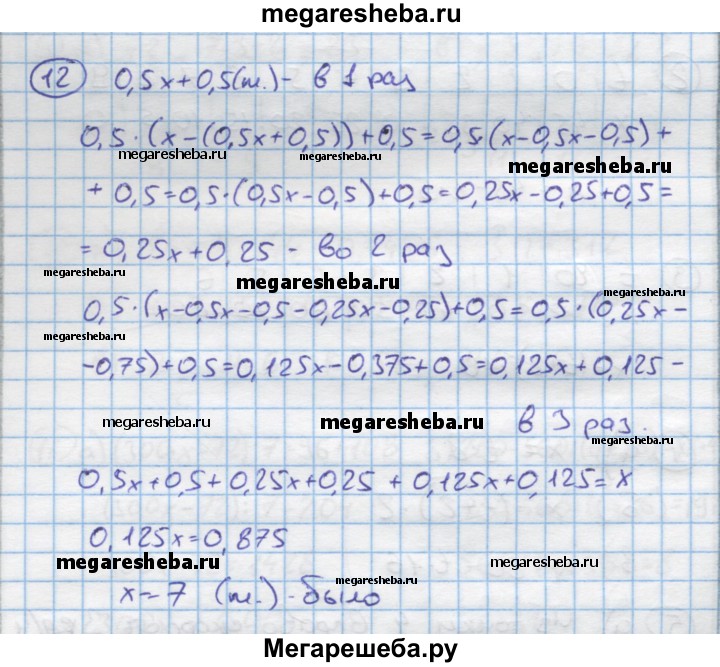 megaresheba.ru
12 0,5x+0,5(т.)- в 1 раз
0,5·(x-(0,5x+0,5))+0,5=0,5·(x-0,5x-0,5)+
megaresheba.ru megaresheba.ru megaresheba.ru
+ 0,5=0,5·(0,5x-0,5)+0,5=0,25x-0,25+0,5=
=0,25x+0,25 - во 2 раз
megaresheba.ru megaresheba.ru megaresheba.ru
0,5·(x-0,5x-0,5-0,25x-0,25)+0,5=0,5·(0,25x-
-0,75)+0,5=0,125x-0,375+0,5=0,125x+0,125-
megaresheba.ru megaresheba.ru в 3 раз.
megaresheba.ru
0,5x+0,5+0,25x+0,25+0,125x+0,125=x
0,125x=0,875
megaresheba.ru megaresheba.ru
x=7 (т.)-было
megaresheba.ru
Мегарешеба.ру